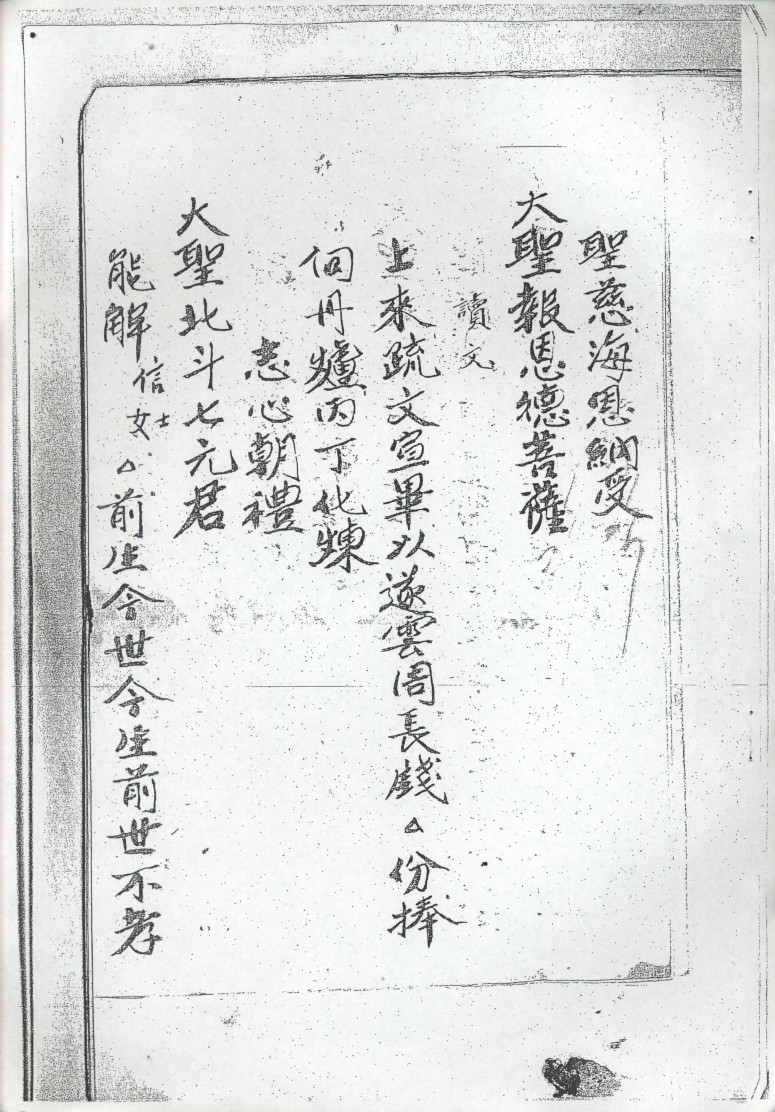 聖慈海恩納受
大聖報恩德菩薩
讀文
上來疏文宣畢以遂雲周長錢△份捧
向丹爐丙丁化煉
志心朝禮
大聖北斗七元君
能解信士女△前生今世今生前世不孝